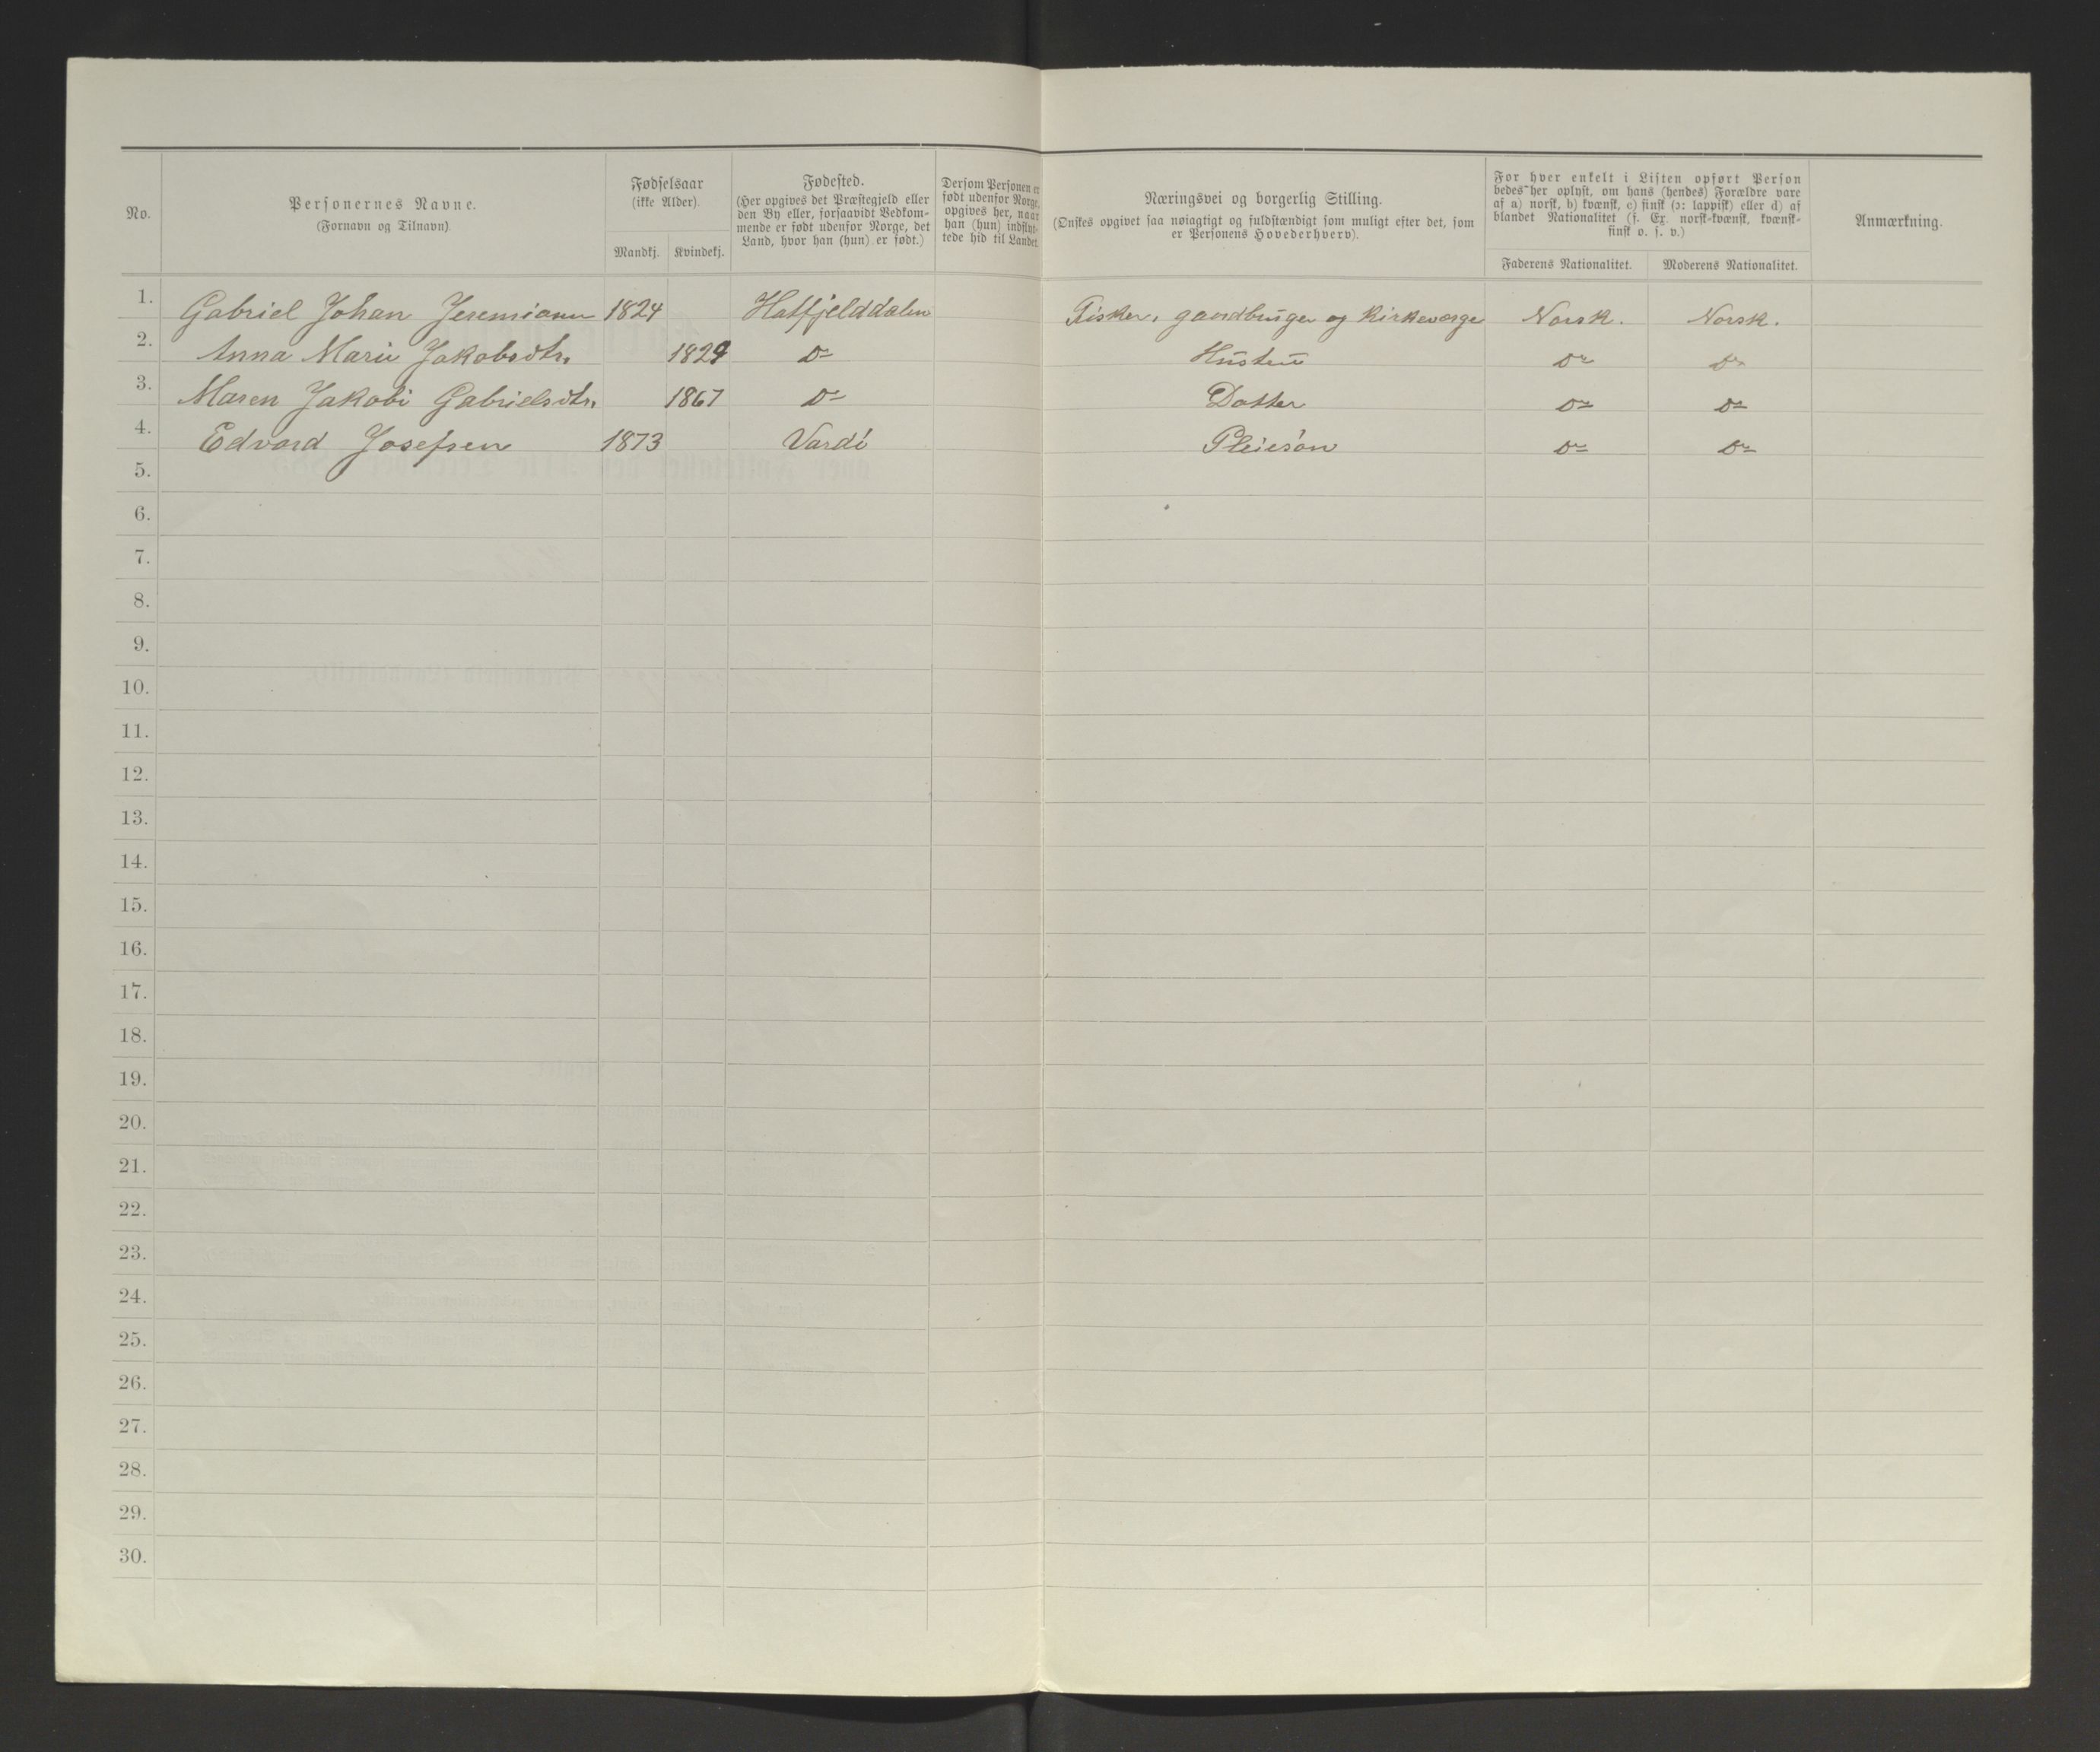 No.
Personernes Navne.
(Fornavn og Tilnavn)
Fødselsaar
(ikke Alder).
Mandkj. Kvindekj.
Fødested.
(Her opgives det Præstegjeld eller
den By eller, forsaavidt Vedkom-
mende er født udenfor Norge, det
Land, hvor han (hun) er født.)
Dersom Personen er
født udenfor Norge,
opgives her, naar
han (hun) indflyt-
tede hid til Landet.
Næringsvei og borgerlig Stilling.
(Ønskes opgivet saa nøiagtigt og fuldstændigt som muligt efter det, som
er Personens Hovederhverv).
For hver enkelt i Listen opført Person
bedes her oplyst, om hans (hendes) Forældre vare
af a) norsk, b) kvænsk, c) finsk (ɔ: lappisk) eller d) af
blandet Nationalitet (s. Ex. norsk-kvænsk, kvænsk-
finsk o. s. v.)
Faderens Nationalitet. Moderens Nationalitet.
Anmærkning.
1. Gabriel Johan Jeremiasen 1824 Hatfjelddalen Fisker, gaardbruger og Kirkeværge Norsk. Norsk.
2. Anna Marie Jakobsdtr. 1829 Do Hustru Do Do
3. Maren Jakobi Gabrielsdtr. 1867 Do Datter Do Do
4. Edvard Josefsen 1873 Vardö Pleiesön Do Do
5.
6.
7.
8.
9.
10.
11.
12.
13.
14.
15.
16.
17.
18.
19.
20.
21.
22.
23.
24.
25.
26.
27.
28.
29.
30.